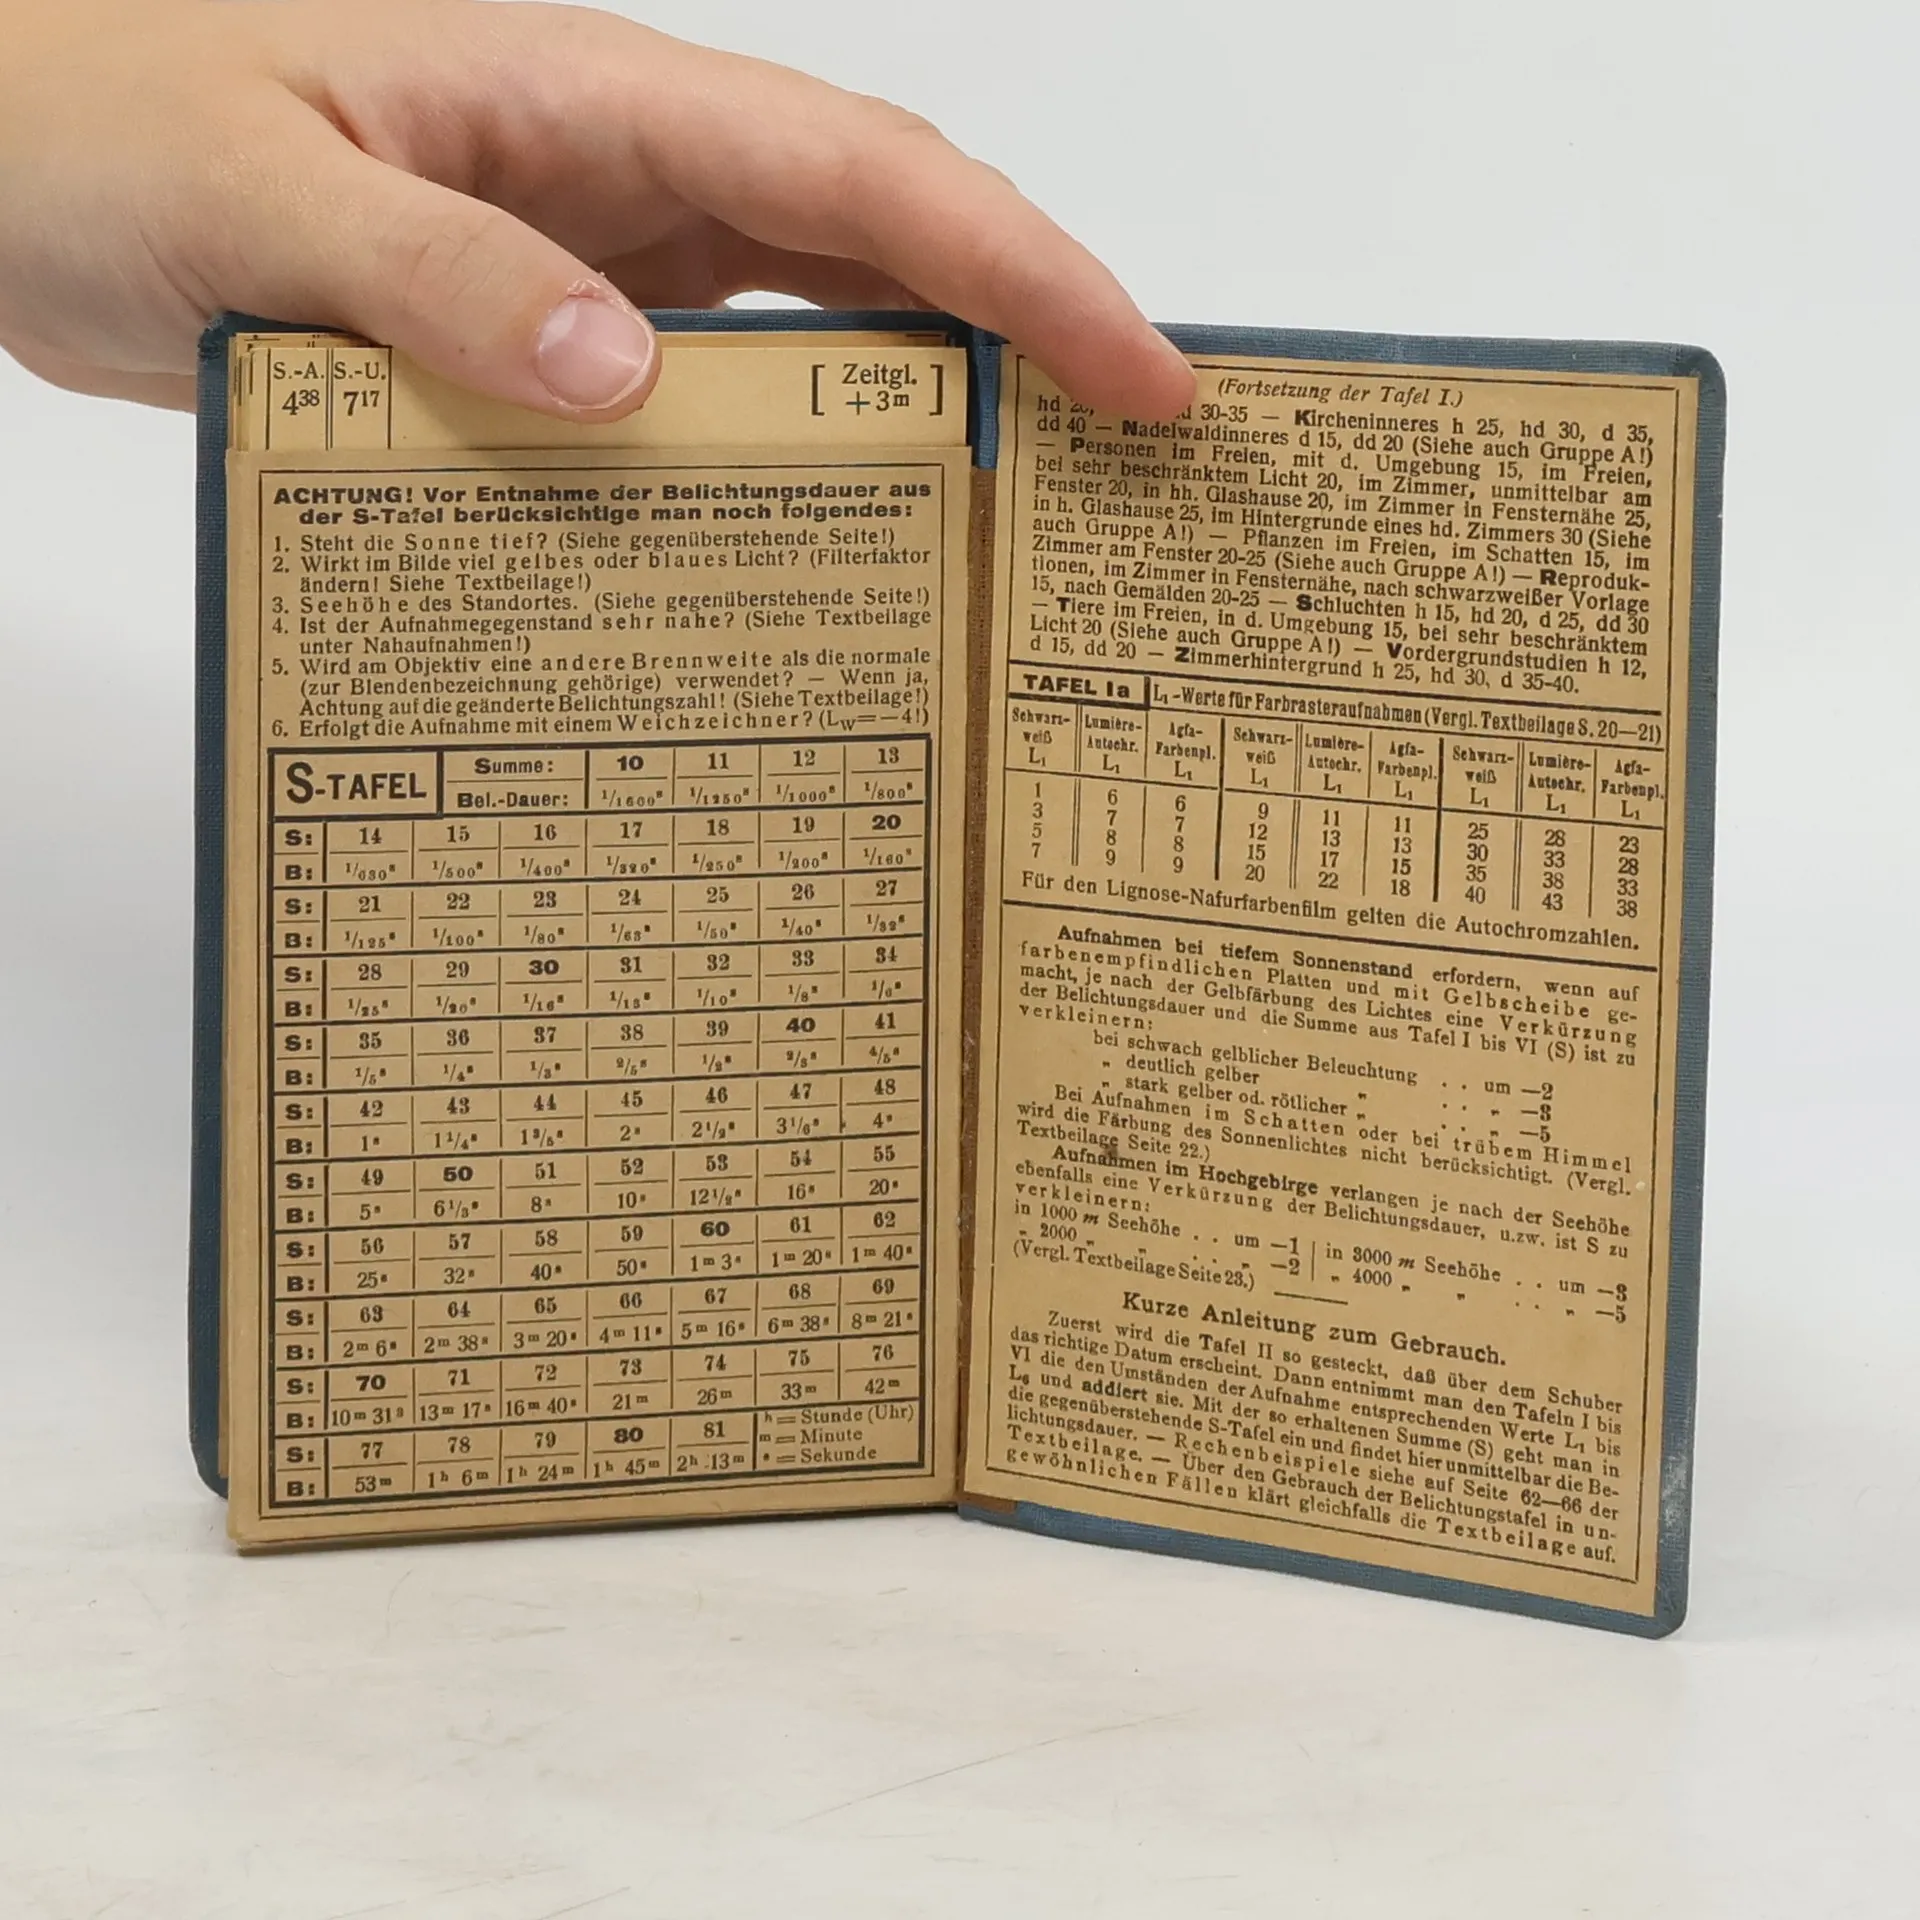 S.-A. S.-U.
4 38 7 17
[ Zeitgl. ]
+3m
ACHTUNG! Vor Entnahme der Belichtungsdauer aus
der S-Tafel berücksichtige man noch folgendes:
1. Steht die Sonne tief? (Siehe gegenüberstehende Seite!)
2. Wirkt im Bilde viel gelbes oder blaues Licht? (Filterfaktor
ändern! Siehe Textbeilage!)
3. Seehöhe des Standortes. (Siehe gegenüberstehende Seite!)
4. Ist der Aufnahmegegenstand sehr nahe? (Siehe Textbeilage
unter Nahaufnahmen!)
5. Wird am Objektiv eine andere Brennweite als die normale
(zur Blendenbezeichnung gehörige) verwendet? — Wenn ja,
Achtung auf die geänderte Belichtungszahl! (Siehe Textbeilage!)
6. Erfolgt die Aufnahme mit einem Weichzeichner? (Lw=—4!)
S-TAFEL
Summe: 10 11 12 13
Bel.-Dauer: 1/1600s 1/1250s 1/1000s 1/800s
S: 14 15 16 17 18 19 20
B: 1/630s 1/500s 1/400s 1/320s 1/250s 1/200s 1/160s
S: 21 22 23 24 25 26 27
B: 1/125s 1/100s 1/80s 1/63s 1/50s 1/40s 1/32s
S: 28 29 30 31 32 33 34
B: 1/25s 1/20s 1/16s 1/13s 1/10s 1/8s 1/6s
S: 35 36 37 38 39 40 41
B: 1/5s 1/4s 1/3s 2/5s 1/2s 2/3s 4/5s
S: 42 43 44 45 46 47 48
B: 1s 1 1/4s 1 3/5s 2s 2 1/2s 3 1/6s 4s
S: 49 50 51 52 53 54 55
B: 5s 6 1/3s 8s 10s 12 1/2s 16s 20s
S: 56 57 58 59 60 61 62
B: 25s 32s 40s 50s 1m 3s 1m 20s 1m 40s
S: 63 64 65 66 67 68 69
B: 2m 6s 2m 38s 3m 20s 4m 11s 5m 16s 6m 38s 8m 21s
S: 70 71 72 73 74 75 76
B: 10m 31s 13m 17s 16m 40s 21m 26m 33m 42m
S: 77 78 79 80 81
B: 53m 1h 6m 1h 24m 1h 45m 2h 13m
h = Stunde (Uhr)
m = Minute
s = Sekunde
(Fortsetzung der Tafel I.)
hd 30-35 — Kircheninneres h 25, hd 30, d 35,
dd 40 — Nadelwaldinneres d 15, dd 20 (Siehe auch Gruppe A!)
— Personen im Freien, mit d. Umgebung 15, im Freien,
bei sehr beschränktem Licht 20, im Zimmer, unmittelbar am
Fenster 20, in hh. Glashause 20, im Zimmer in Fensternähe 25,
in h. Glashause 25, im Hintergrunde eines hd. Zimmers 30 (Siehe
auch Gruppe A!) — Pflanzen im Freien, im Schatten 15, im
Zimmer am Fenster 20-25 (Siehe auch Gruppe A!) — Reproduk-
tionen, im Zimmer in Fensternähe, nach schwarzweißer Vorlage
15, nach Gemälden 20-25 — Schluchten h 15, hd 20, d 25, dd 30
— Tiere im Freien, in d. Umgebung 15, bei sehr beschränktem
Licht 20 (Siehe auch Gruppe A!) — Vordergrundstudien h 12,
d 15, dd 20 — Zimmerhintergrund h 25, hd 30, d 35-40.
TAFEL Ia L1-Werte für Farbrasteraufnahmen (Vergl. Textbeilage S. 20—21)
Schwarz- Lumière- Agfa- Schwarz- Lumière- Agfa- Schwarz- Lumière- Agfa-
weiß Autochr. Farbenpl. weiß Autochr. Farbenpl. weiß Autochr. Farbenpl.
L1 L1 L1 L1 L1 L1 L1 L1 L1
1 6 6 9 11 11 25 28 23
3 7 7 12 13 13 30 33 28
5 8 8 15 17 15 35 38 33
7 9 9 20 22 18 40 43 38
Für den Lignose-Naturfarbenfilm gelten die Autochromzahlen.
Aufnahmen bei tiefem Sonnenstand erfordern, wenn auf
farbenempfindlichen Platten und mit Gelbscheibe ge-
macht, je nach der Gelbfärbung des Lichtes eine Verkürzung
der Belichtungsdauer und die Summe aus Tafel I bis VI (S) ist zu
verkleinern:
bei schwach gelblicher Beleuchtung . . um —2
„ deutlich gelber „ . . „ —3
„ stark gelber od. rötlicher „ . . „ —5
Bei Aufnahmen im Schatten oder bei trübem Himmel
wird die Färbung des Sonnenlichtes nicht berücksichtigt. (Vergl.
Textbeilage Seite 22.)
Aufnahmen im Hochgebirge verlangen je nach der Seehöhe
ebenfalls eine Verkürzung der Belichtungsdauer, u.zw. ist S zu
verkleinern:
in 1000 m Seehöhe . . um —1 | in 3000 m Seehöhe . . um —3
„ 2000 „ „ . . „ —2 | „ 4000 „ „ . . „ —5
(Vergl. Textbeilage Seite 23.)
Kurze Anleitung zum Gebrauch.
Zuerst wird die Tafel II so gesteckt, daß über dem Schuber
das richtige Datum erscheint. Dann entnimmt man den Tafeln I bis
VI die den Umständen der Aufnahme entsprechenden Werte L1 bis
L6 und addiert sie. Mit der so erhaltenen Summe (S) geht man in
die gegenüberstehende S-Tafel ein und findet hier unmittelbar die Be-
lichtungsdauer. — Rechenbeispiele siehe auf Seite 62—66 der
Textbeilage. — Über den Gebrauch der Belichtungstafel in un-
gewöhnlichen Fällen klärt gleichfalls die Textbeilage auf.